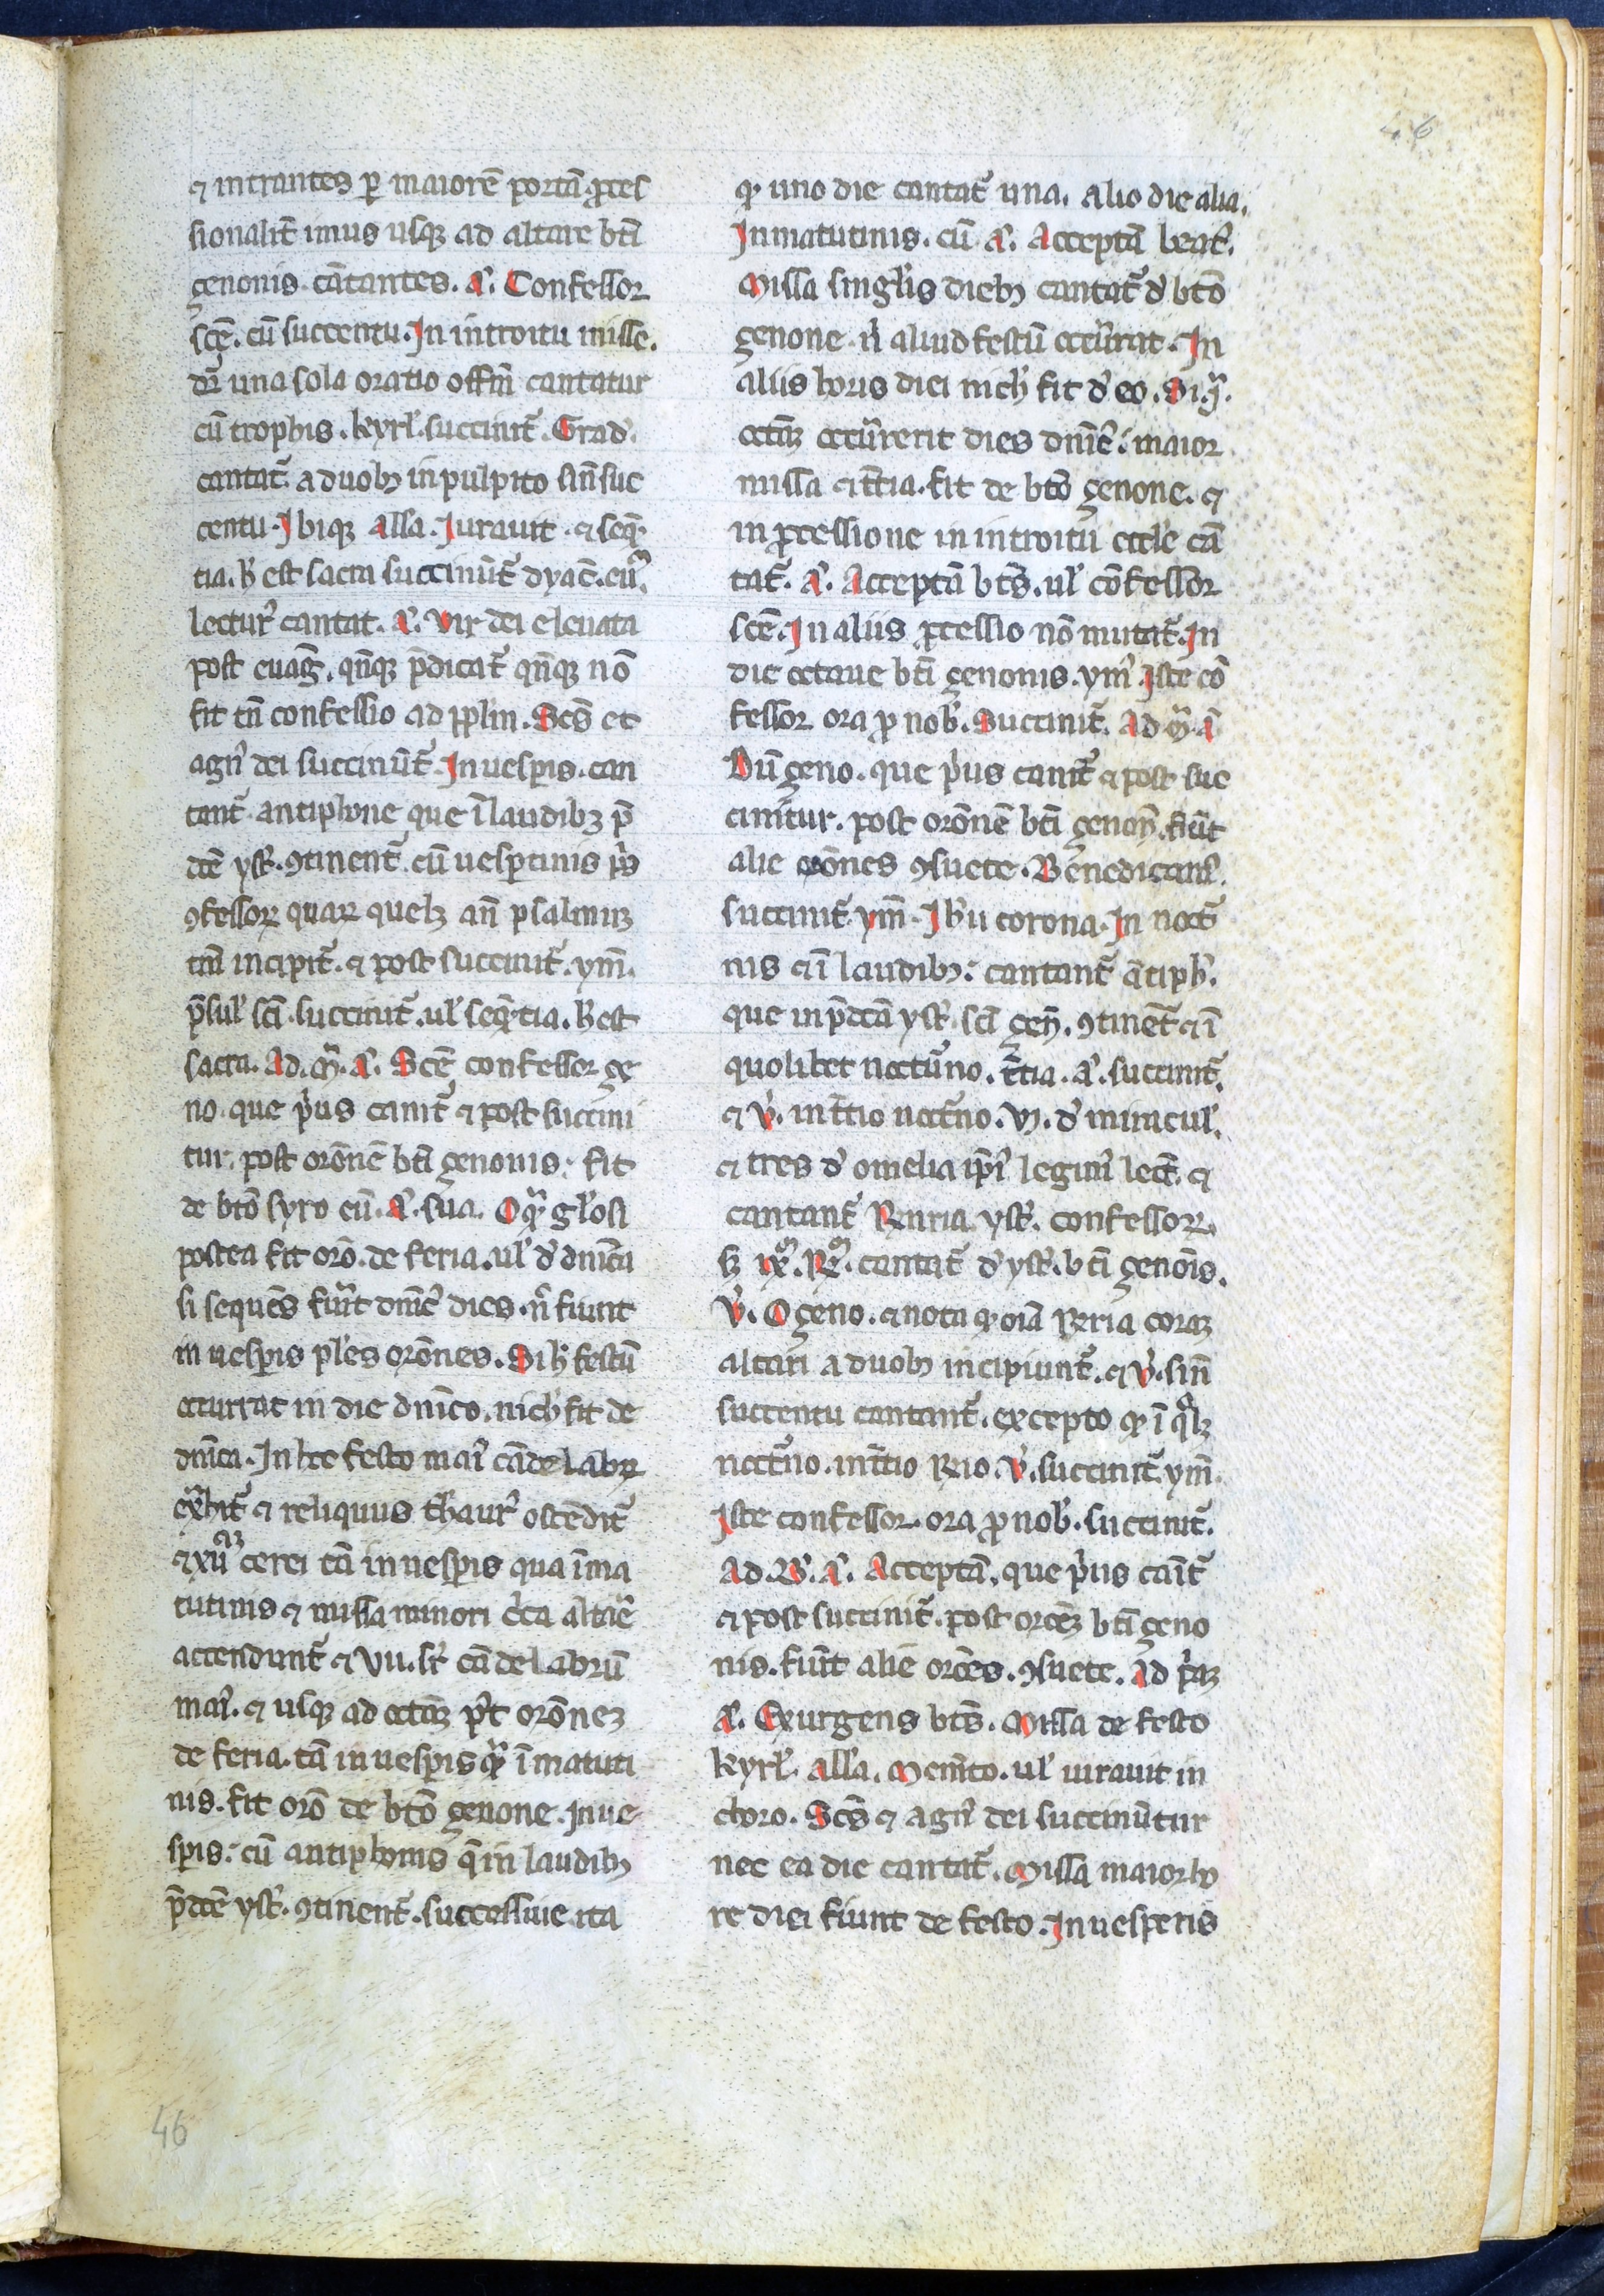 ⁊ intrantes ꝑ maiorē portā ꝓces
sionalit̄ imus usqꝫ ad altare bt̄i
genonis cātantes. A͛. Confessor
scē. cū succentu. In introitu misse.
dr̄ una sola oratio offm̄ cantatur
cū trophis. kyrl̕. succinit̄. Grad̕.
cantat̄ a duobꝫ in pulpito sin̄ suc
centu. Ibiqꝫ alla. Iurauit. ⁊ seq̄
tia. h̕ est sacra succinūt̄ dyac̄. eu᷑.
lectur͛ cantat. A͛. Vir dei eleuata
post euāg. qn̄qꝫ p̄dicat̄ qn̄qꝫ nō
fit tn̄ confessio ad pplm̄. Scs̄ et
agn͛ dei succinūt̄. In uesꝑis. can
tant̄ antiphone que ī laudibꝫ p̄
dc̄e yst͛. ꝯtinent̄. cū uesꝑtinis p̄s
ꝯfessoꝝ quaꝝ quelꝫ an̄ psalmuꝫ
tm̄ incipit̄. ⁊ post succinit̄. ym̄.
p̄sul̕ sc̄i. succinit̄. ul̕ seq̄tia. h̕ est
sacra. Ad. m᷑. A͛. Scē confessor ge
no. que p͛us canit̄ ⁊ post succini
tur. post orōnē bt̄i genonis. fit
de btō syro cū. A͛. sua. Oq᷑ gl̕osi
postea fit orō. de feria. ul̕ d̕ dnīca
si sequēs fu͛it dnīc͛ dies. n̄ fiunt
in uesꝑis pl̕es orōnes. Si h̕ festū
occurrat in die dnīco. nich̕ fit de
dnīca. In hoc festo mai͛ cādelabꝝ
ex᷑hit̄ ⁊ reliquus th̕aur͛ ostēdit̄
⁊ xii cerei tā in uesꝑis quā ī ma
tutinis ⁊ missa minori c͛ca altar͛
accendunt̄ ⁊ vii. sr̄ cādelabrū
mai͛. ⁊ usqꝫ ad octāꝫ p͛t orōneꝫ
de feria. tā in uesꝑis q᷑ ī matuti
nis. fit orō de btō genone. In ue
sꝑis. cū antiphonis q̄ in laudibꝫ
p̄dc̄e yst͛. ꝯtinent̄. successiue. ita
ꝙ uno die cantat̄ una. alio die alia.
In matutinis. cū A͛. Acceptā beat͛.
Missa singl̕is diebꝫ cantat̄ d̕ btō
genone. n͛ aliud festū occūrat. In
aliis horis diei nich̕ fit d̕ eo. Si. q᷑.
octāꝫ occūrerit dies dnīc͛. maior
missa ⁊ t̄tia. fit de btō genone. ⁊
in ꝓcessione in introitu eccl̕e cā
tat̄. A͛. Acceptā bt̄s. ul̕ cōfessor
scē. In aliis ꝓcessio nō mutat̄. In
die octaue bt̄i genonis. ym͛. Iste cō
fessor ora ꝓ nob͛. Succinit̄. Ad m᷑. A͛
Dū geno. que p͛us canit̄ ⁊ post suc
cinitur. post orōnē bt̄i genoñ. fiūt
alie orōnes ꝯsuete. Benedicam̕.
succinit̄. ym̄. Ih̕u corona. In noct̄
nis ⁊ ī laudibꝫ. cantant̄ ātiph͛.
que in p̄dc̄a yst͛. sc̄i geñ. ꝯtinēt̄ ⁊ ī
quolibet noctūno. t̄tia. A͛. succinit̄.
⁊ v͛. in t̄tio noct̄no. vi. d̕ miracul̕.
⁊ tres d̕ omelia ip̄i͛ legim͛ lect̄. ⁊
cantant̄ Rn̄ria. yst͛. confessoꝝ.
sꝫ ix. R. cantat̄ d̕ yst͛. bt̄i genōis.
v͛. O geno. ⁊ nota ꝙ oīa Reria coraꝫ
altari a duobꝫ incipiunt̄. ⁊ v͛. sin̄
succentu cantant̄. excepto ꝙ ī q͛lꝫ
noct̄no. in t̄tio Rn̄o. v͛. succinit̄. ym̄.
Iste confessor. ora ꝓ nob͛. succinit̄.
Ad. B͛. A͛. Acceptā. que p͛us canit̄
⁊ post succinit̄. post orōeꝫ bt̄i geno
nis. fiūt alie orōes. ꝯsuete. Ad p͛aꝫ
A͛. Exurgens bt̄s. Missa de festo
kyrl̕. all̕a. Memēto. ul̕ iurauit in
choro. Scs̄ ⁊ agn͛ dei succinūtur
nec ea die cantat̄. Missa maior ho
re diei fiunt de festo. In uesperis
46
46